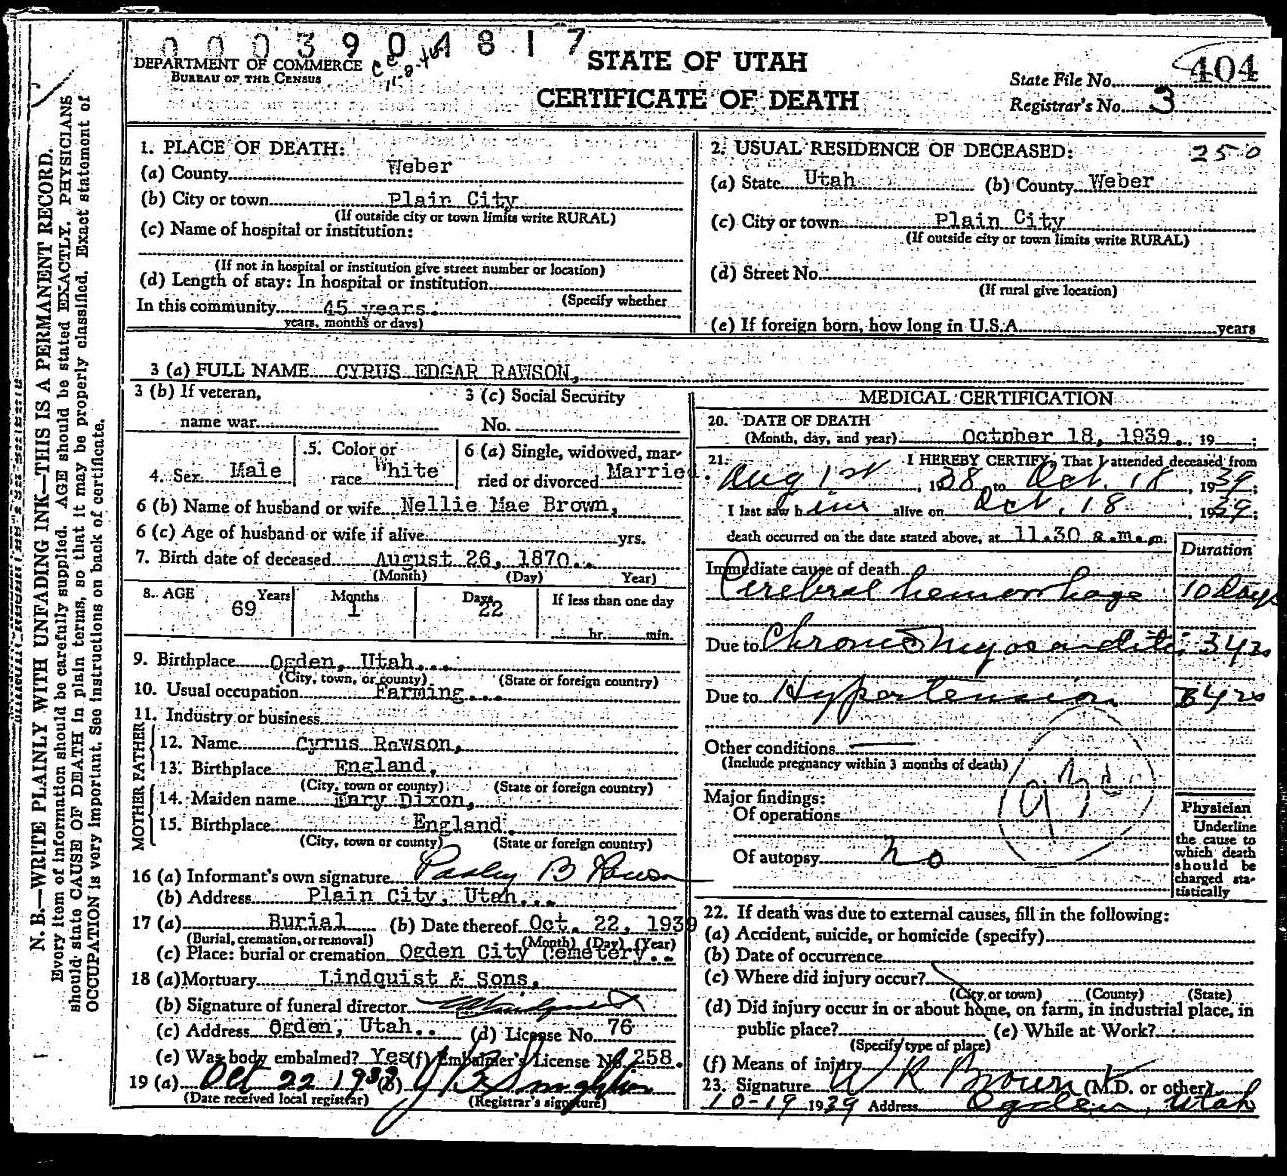 0003904817
DEPARTMENT OF COMMERCE
BUREAU OF THE CENSUS
STATE OF UTAH
CERTIFICATE OF DEATH
State File No. 404
Registrar's No. 3
N. B.—WRITE PLAINLY WITH UNFADING INK—THIS IS A PERMANENT RECORD.
Every item of information should be carefully supplied. AGE should be stated EXACTLY. PHYSICIANS
should state CAUSE OF DEATH in plain terms, so that it may be properly classified. Exact statement of
OCCUPATION is very important. See instructions on back of certificate.
1. PLACE OF DEATH:
(a) County Weber
(b) City or town Plain City
(If outside city or town limits write RURAL)
(c) Name of hospital or institution:
(If not in hospital or institution give street number or location)
(d) Length of stay: In hospital or institution
(Specify whether
In this community 45 years.
years, months or days)
2. USUAL RESIDENCE OF DECEASED: 250
(a) State Utah (b) County Weber
(c) City or town Plain City
(If outside city or town limits write RURAL)
(d) Street No.
(If rural give location)
(e) If foreign born, how long in U.S.A. years
3 (a) FULL NAME CYRUS EDGAR RAWSON,
3 (b) If veteran, name war
3 (c) Social Security No.
4. Sex Male
5. Color or race White
6 (a) Single, widowed, married or divorced Married.
6 (b) Name of husband or wife Nellie Mae Brown,
6 (c) Age of husband or wife if alive yrs.
7. Birth date of deceased August 26, 1870..
(Month) (Day) Year)
8. AGE Years Months Days If less than one day
69 1 22 hr. min.
9. Birthplace Ogden, Utah...
(City, town, or county) (State or foreign country)
10. Usual occupation Farming...
11. Industry or business
FATHER
12. Name Cyrus Rawson,
13. Birthplace England,
(City, town or county) (State or foreign country)
MOTHER
14. Maiden name Enry Dixon,
15. Birthplace England.
(City, town or county) (State or foreign country)
16 (a) Informant's own signature B Rawson
(b) Address Plain City, Utah...
17 (a) Burial (b) Date thereof Oct. 22, 1939
(Burial, cremation, or removal) (Month) (Day) (Year)
(c) Place: burial or cremation Ogden City Cemetery..
18 (a) Mortuary Lindquist & Sons,
(b) Signature of funeral director
(c) Address Ogden, Utah.. (d) License No. 76
(e) Was body embalmed? Yes (f) Embalmer's License No. 258.
19 (a) Oct 22 1939 (b)
(Date received local registrar) (Registrar's signature)
MEDICAL CERTIFICATION
20. DATE OF DEATH
(Month, day, and year) October 18, 1939.. 19 ;
21. I HEREBY CERTIFY, That I attended deceased from
Aug 1st, 1938 to Oct. 18, 1939
I last saw him alive on Oct. 18, 1939;
death occurred on the date stated above, at 11.30 a.m. m.
Duration
Immediate cause of death
Cerebral hemorrhage 10 days
Due to Chronic Myocarditis 3 yrs
Due to Hypertension 6 yrs
Other conditions
(Include pregnancy within 3 months of death)
Major findings:
Of operations
Of autopsy no
Physician
Underline
the cause to
which death
should be
charged sta-
tistically
22. If death was due to external causes, fill in the following:
(a) Accident, suicide, or homicide (specify)
(b) Date of occurrence
(c) Where did injury occur?
(City or town) (County) (State)
(d) Did injury occur in or about home, on farm, in industrial place, in
public place? (e) While at Work?
(Specify type of place)
(f) Means of injury
23. Signature W R Brown (M.D. or other)
10-19 1939 Address Ogden, Utah